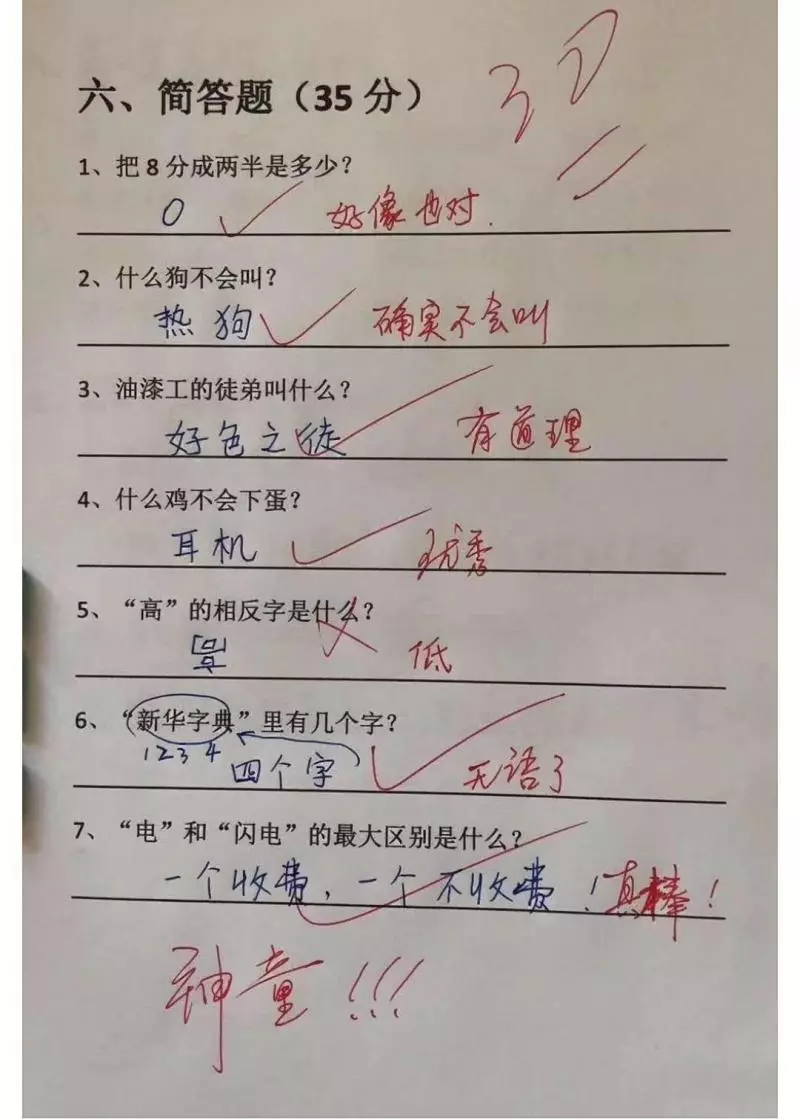 六、简答题（35 分） 30
1、把 8 分成两半是多少？
0 好像也对.
2、什么狗不会叫？
热狗 确实不会叫
3、油漆工的徒弟叫什么？
好色之徒 有道理
4、什么鸡不会下蛋？
耳机 优秀
5、“高”的相反字是什么？
低
6、“新华字典”里有几个字？
1 2 3 4 四个字 无语了
7、“电”和“闪电”的最大区别是什么？
一个收费，一个不收费！真棒！
神童!!!